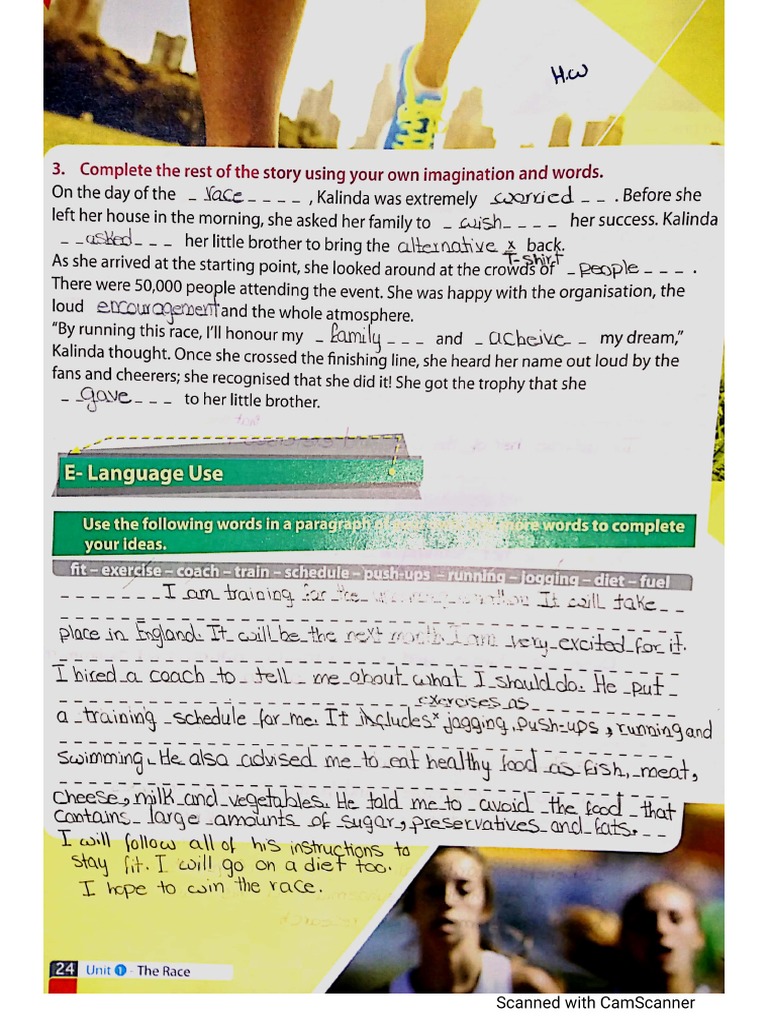 H.W
3. Complete the rest of the story using your own imagination and words.
On the day of the race, Kalinda was extremely worried. Before she
left her house in the morning, she asked her family to wish her success. Kalinda
asked her little brother to bring the alternative x back.
T-shirt
As she arrived at the starting point, she looked around at the crowds of people.
There were 50,000 people attending the event. She was happy with the organisation, the
loud encouragement and the whole atmosphere.
"By running this race, I'll honour my family and acheive my dream,"
Kalinda thought. Once she crossed the finishing line, she heard her name out loud by the
fans and cheerers; she recognised that she did it! She got the trophy that she
gave to her little brother.
E- Language Use
Use the following words in a paragraph of more words to complete
your ideas.
fit – exercise – coach – train – schedule – push-ups – running – jogging – diet – fuel
I am training for the It will take
place in England. It will be the next month. I am very excited for it.
I hired a coach to tell me about what I should do. He put
exercises as
a training schedule for me. It includes x jogging, push-ups, running and
swimming. He also advised me to eat healthy food as fish, meat,
cheese, milk and vegetables. He told me to avoid the food that
contains large amounts of sugar, preservatives and fats.
I will follow all of his instructions to
stay fit. I will go on a diet too.
I hope to win the race.
24 Unit 1 - The Race
Scanned with CamScanner